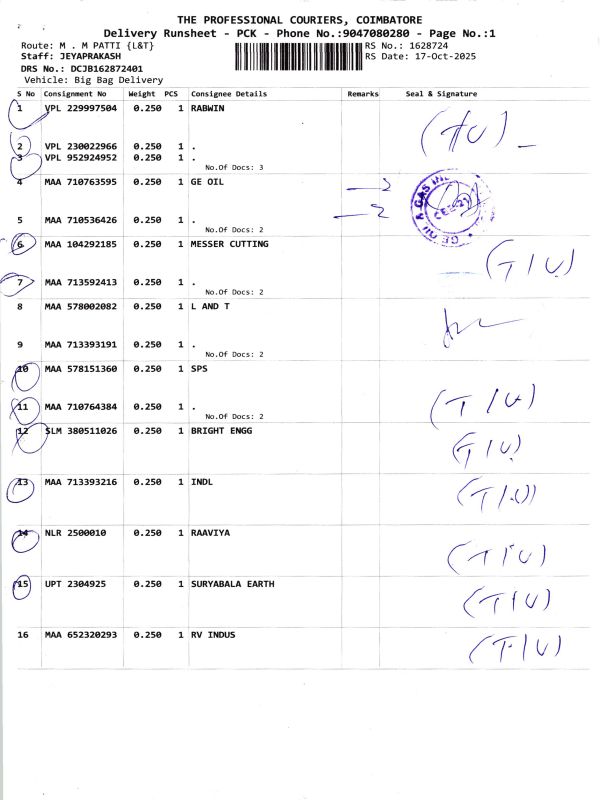 THE PROFESSIONAL COURIERS, COIMBATORE
Delivery Runsheet - PCK - Phone No.:9047080280 - Page No.:1
Route: M . M PATTI {L&T} RS No.: 1628724
Staff: JEYAPRAKASH RS Date: 17-Oct-2025
DRS No.: DCJB162872401
Vehicle: Big Bag Delivery
S No Consignment No Weight PCS Consignee Details Remarks Seal & Signature
1 VPL 229997504 0.250 1 RABWIN
(T/U)
2 VPL 230022966 0.250 1 .
3 VPL 952924952 0.250 1 .
No.Of Docs: 3
4 MAA 710763595 0.250 1 GE OIL
5 MAA 710536426 0.250 1 .
No.Of Docs: 2
6 MAA 104292185 0.250 1 MESSER CUTTING
(T/U)
7 MAA 713592413 0.250 1 .
No.Of Docs: 2
8 MAA 578002082 0.250 1 L AND T
9 MAA 713393191 0.250 1 .
No.Of Docs: 2
10 MAA 578151360 0.250 1 SPS
11 MAA 710764384 0.250 1 . (T/U)
No.Of Docs: 2
12 SLM 380511026 0.250 1 BRIGHT ENGG
(T/U)
13 MAA 713393216 0.250 1 INDL (T/U)
14 NLR 2500010 0.250 1 RAAVIYA
(T/U)
15 UPT 2304925 0.250 1 SURYABALA EARTH
(T/U)
16 MAA 652320293 0.250 1 RV INDUS (T/U)